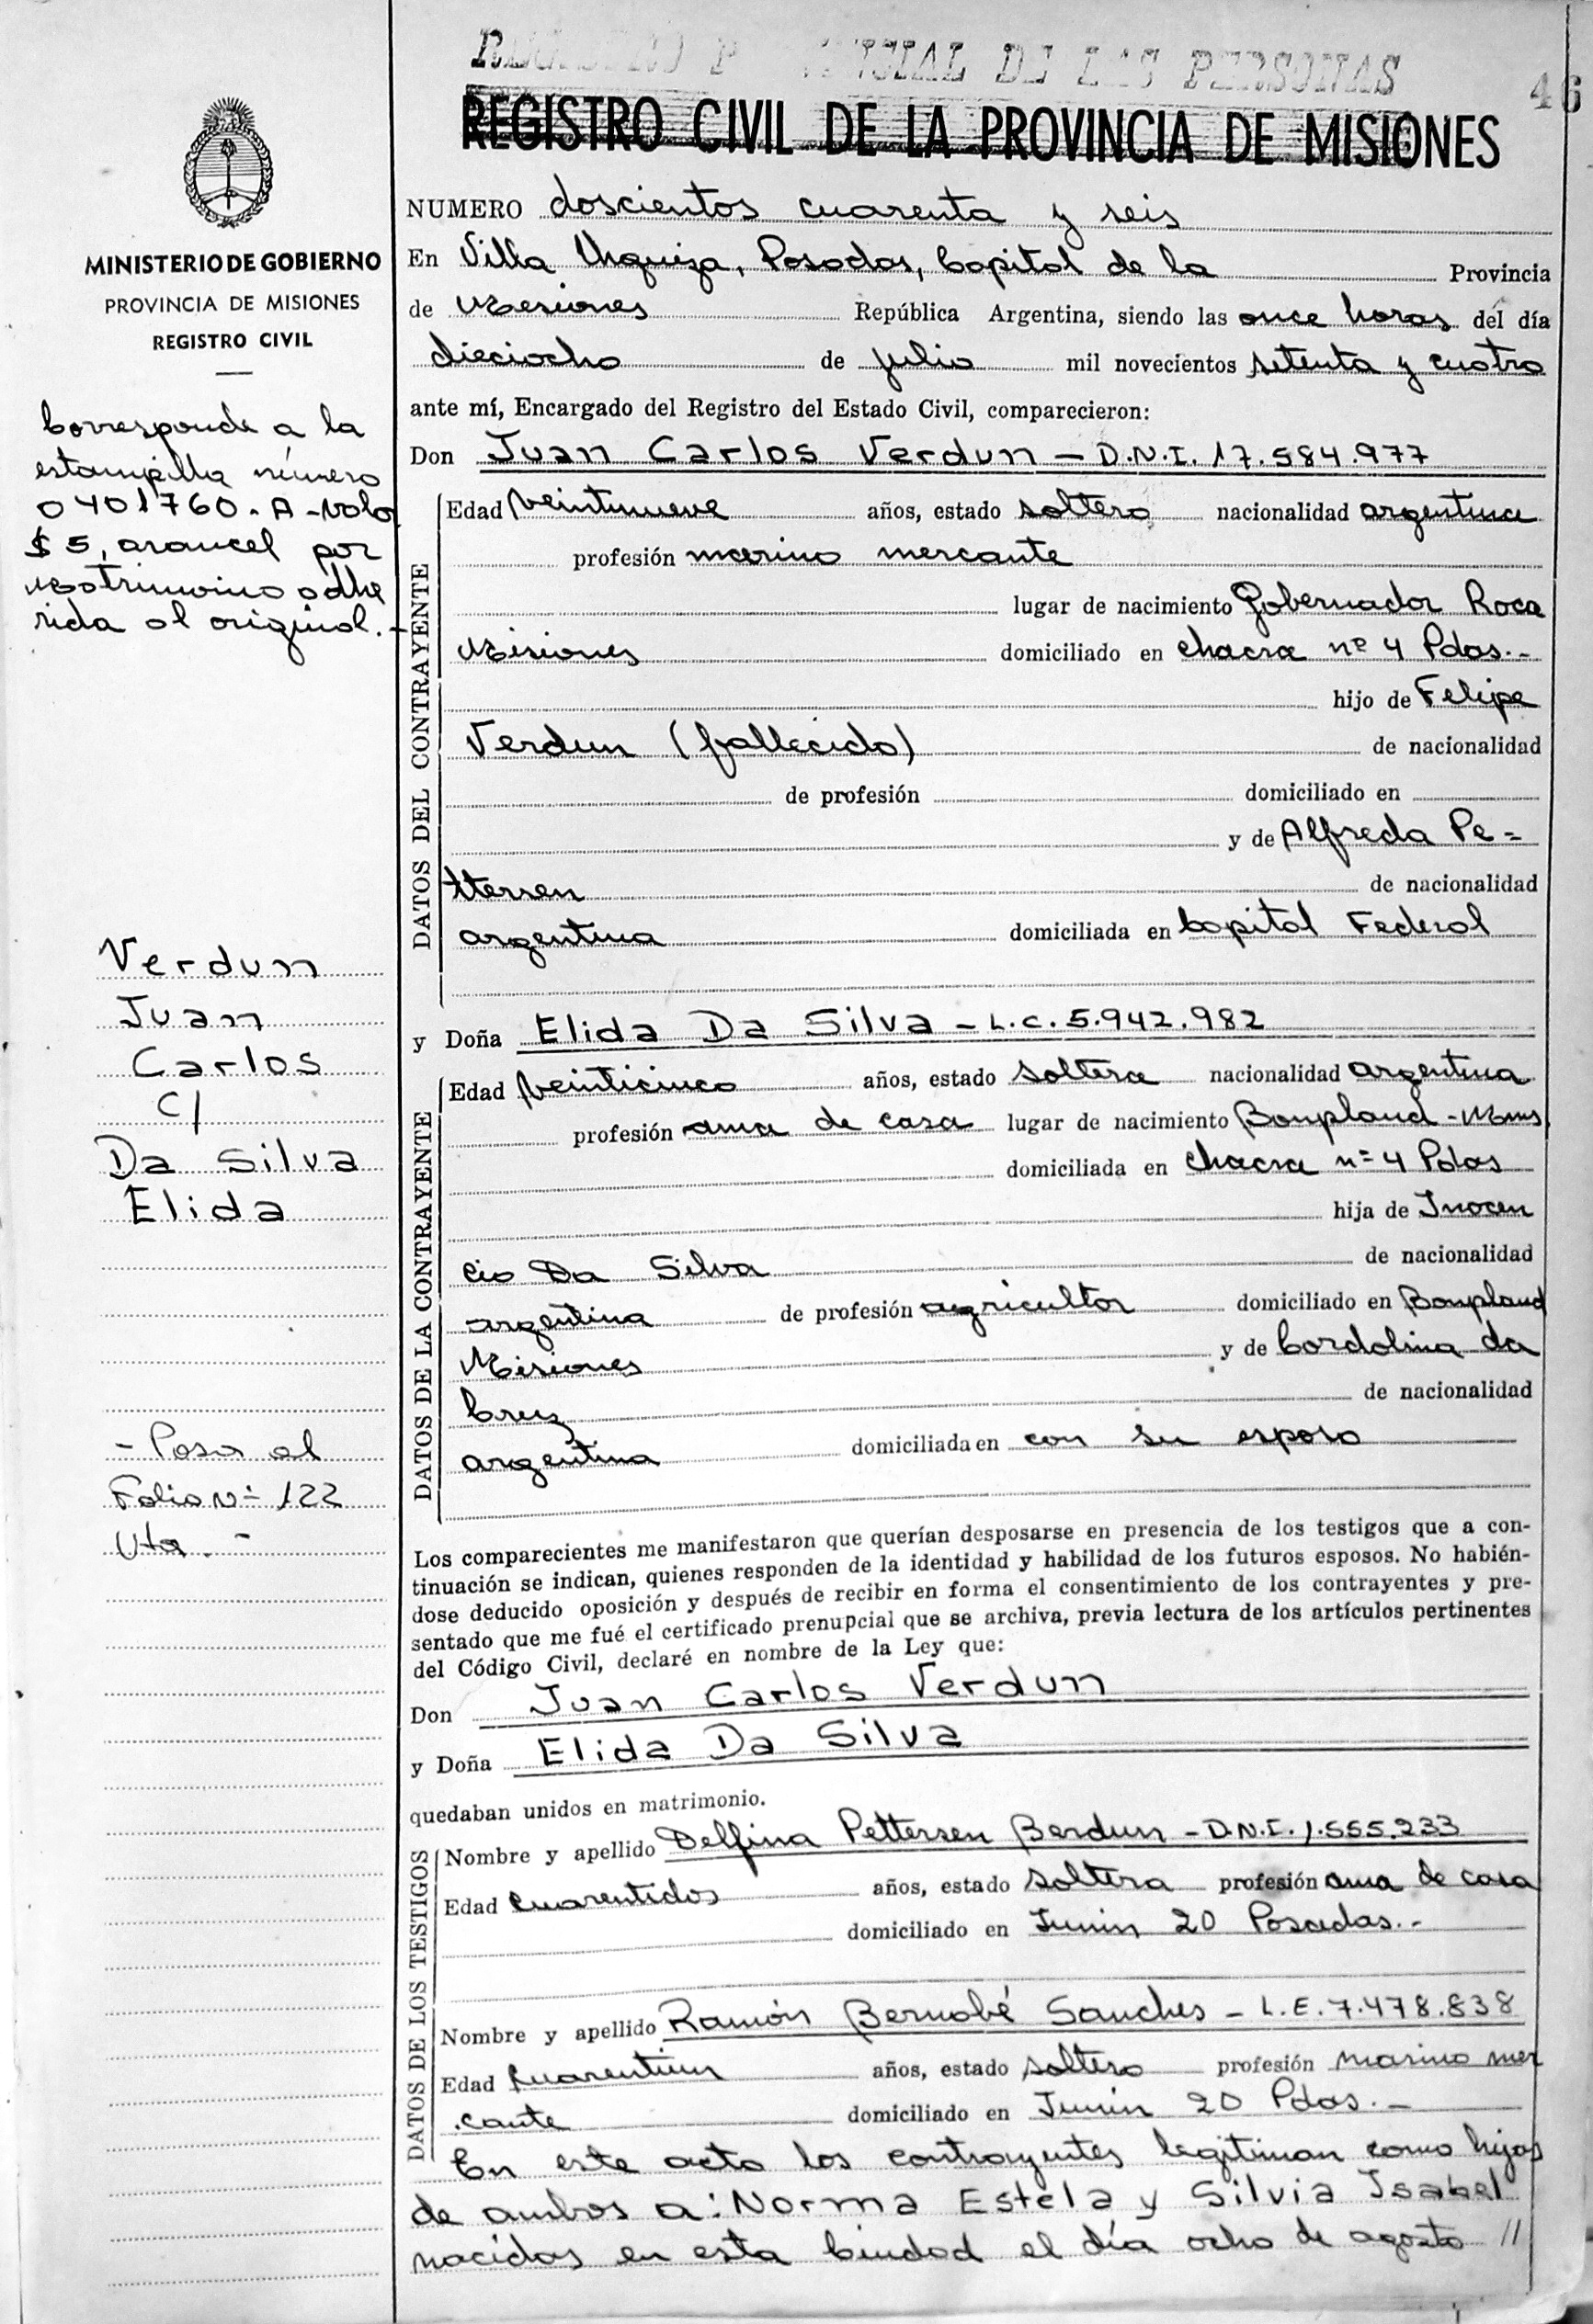 REGISTRO P NCIAL DE LAS PERSONAS
46
REGISTRO CIVIL DE LA PROVINCIA DE MISIONES
MINISTERIO DE GOBIERNO
PROVINCIA DE MISIONES
REGISTRO CIVIL
Corresponde a la
estampilla número
0401760-A-valor
$5, arancel por
Matrimonio adhe
rida al original.-
Verdun
Juan
Carlos
C/
Da Silva
Elida
- Pasa al
Folio Nº 122
Vta. -
NUMERO doscientos cuarenta y seis
En Villa Urquiza, Posadas, Capital de la Provincia
de Misiones República Argentina, siendo las once horas del día
dieciocho de julio mil novecientos setenta y cuatro
ante mí, Encargado del Registro del Estado Civil, comparecieron:
Don Juan Carlos Verdun - D.N.I. 17.584.977
DATOS DEL CONTRAYENTE
Edad veintinueve años, estado soltero nacionalidad argentina
profesión marino mercante
lugar de nacimiento Gobernador Roca
Misiones domiciliado en chacra nº 4 Pdas.-
hijo de Felipe
Verdun (fallecido) de nacionalidad
de profesión domiciliado en
y de Alfreda Pe=
ttersen de nacionalidad
argentina domiciliada en Capital Federal
y Doña Elida Da Silva - L.C. 5.942.982
DATOS DE LA CONTRAYENTE
Edad veinticinco años, estado soltera nacionalidad argentina
profesión ama de casa lugar de nacimiento Bonpland - Mnes
domiciliada en chacra nº 4 Pdas
hija de Inocen
cio Da Silva de nacionalidad
argentina de profesión agricultor domiciliado en Bonpland
Misiones y de Cordolina da
Cruz de nacionalidad
argentina domiciliada en con su esposo
Los comparecientes me manifestaron que querían desposarse en presencia de los testigos que a con-
tinuación se indican, quienes responden de la identidad y habilidad de los futuros esposos. No habién-
dose deducido oposición y después de recibir en forma el consentimiento de los contrayentes y pre-
sentado que me fué el certificado prenupcial que se archiva, previa lectura de los artículos pertinentes
del Código Civil, declaré en nombre de la Ley que:
Don Juan Carlos Verdun
y Doña Elida Da Silva
quedaban unidos en matrimonio.
DATOS DE LOS TESTIGOS
Nombre y apellido Delfina Pettersen Berdun - D.N.I. 1.555.233
Edad cuarentidos años, estado soltera profesión ama de casa
domiciliado en Junin 20 Posadas.-
Nombre y apellido Ramón Bernabé Sanches - L.E. 7.478.838
Edad cuarentiun años, estado soltero profesión marino mer
cante domiciliado en Junin 20 Pdas.-
En este acto los contrayentes legitiman como hijas
de ambos a: Norma Estela y Silvia Isabel
nacidas en esta Ciudad el día ocho de agosto //